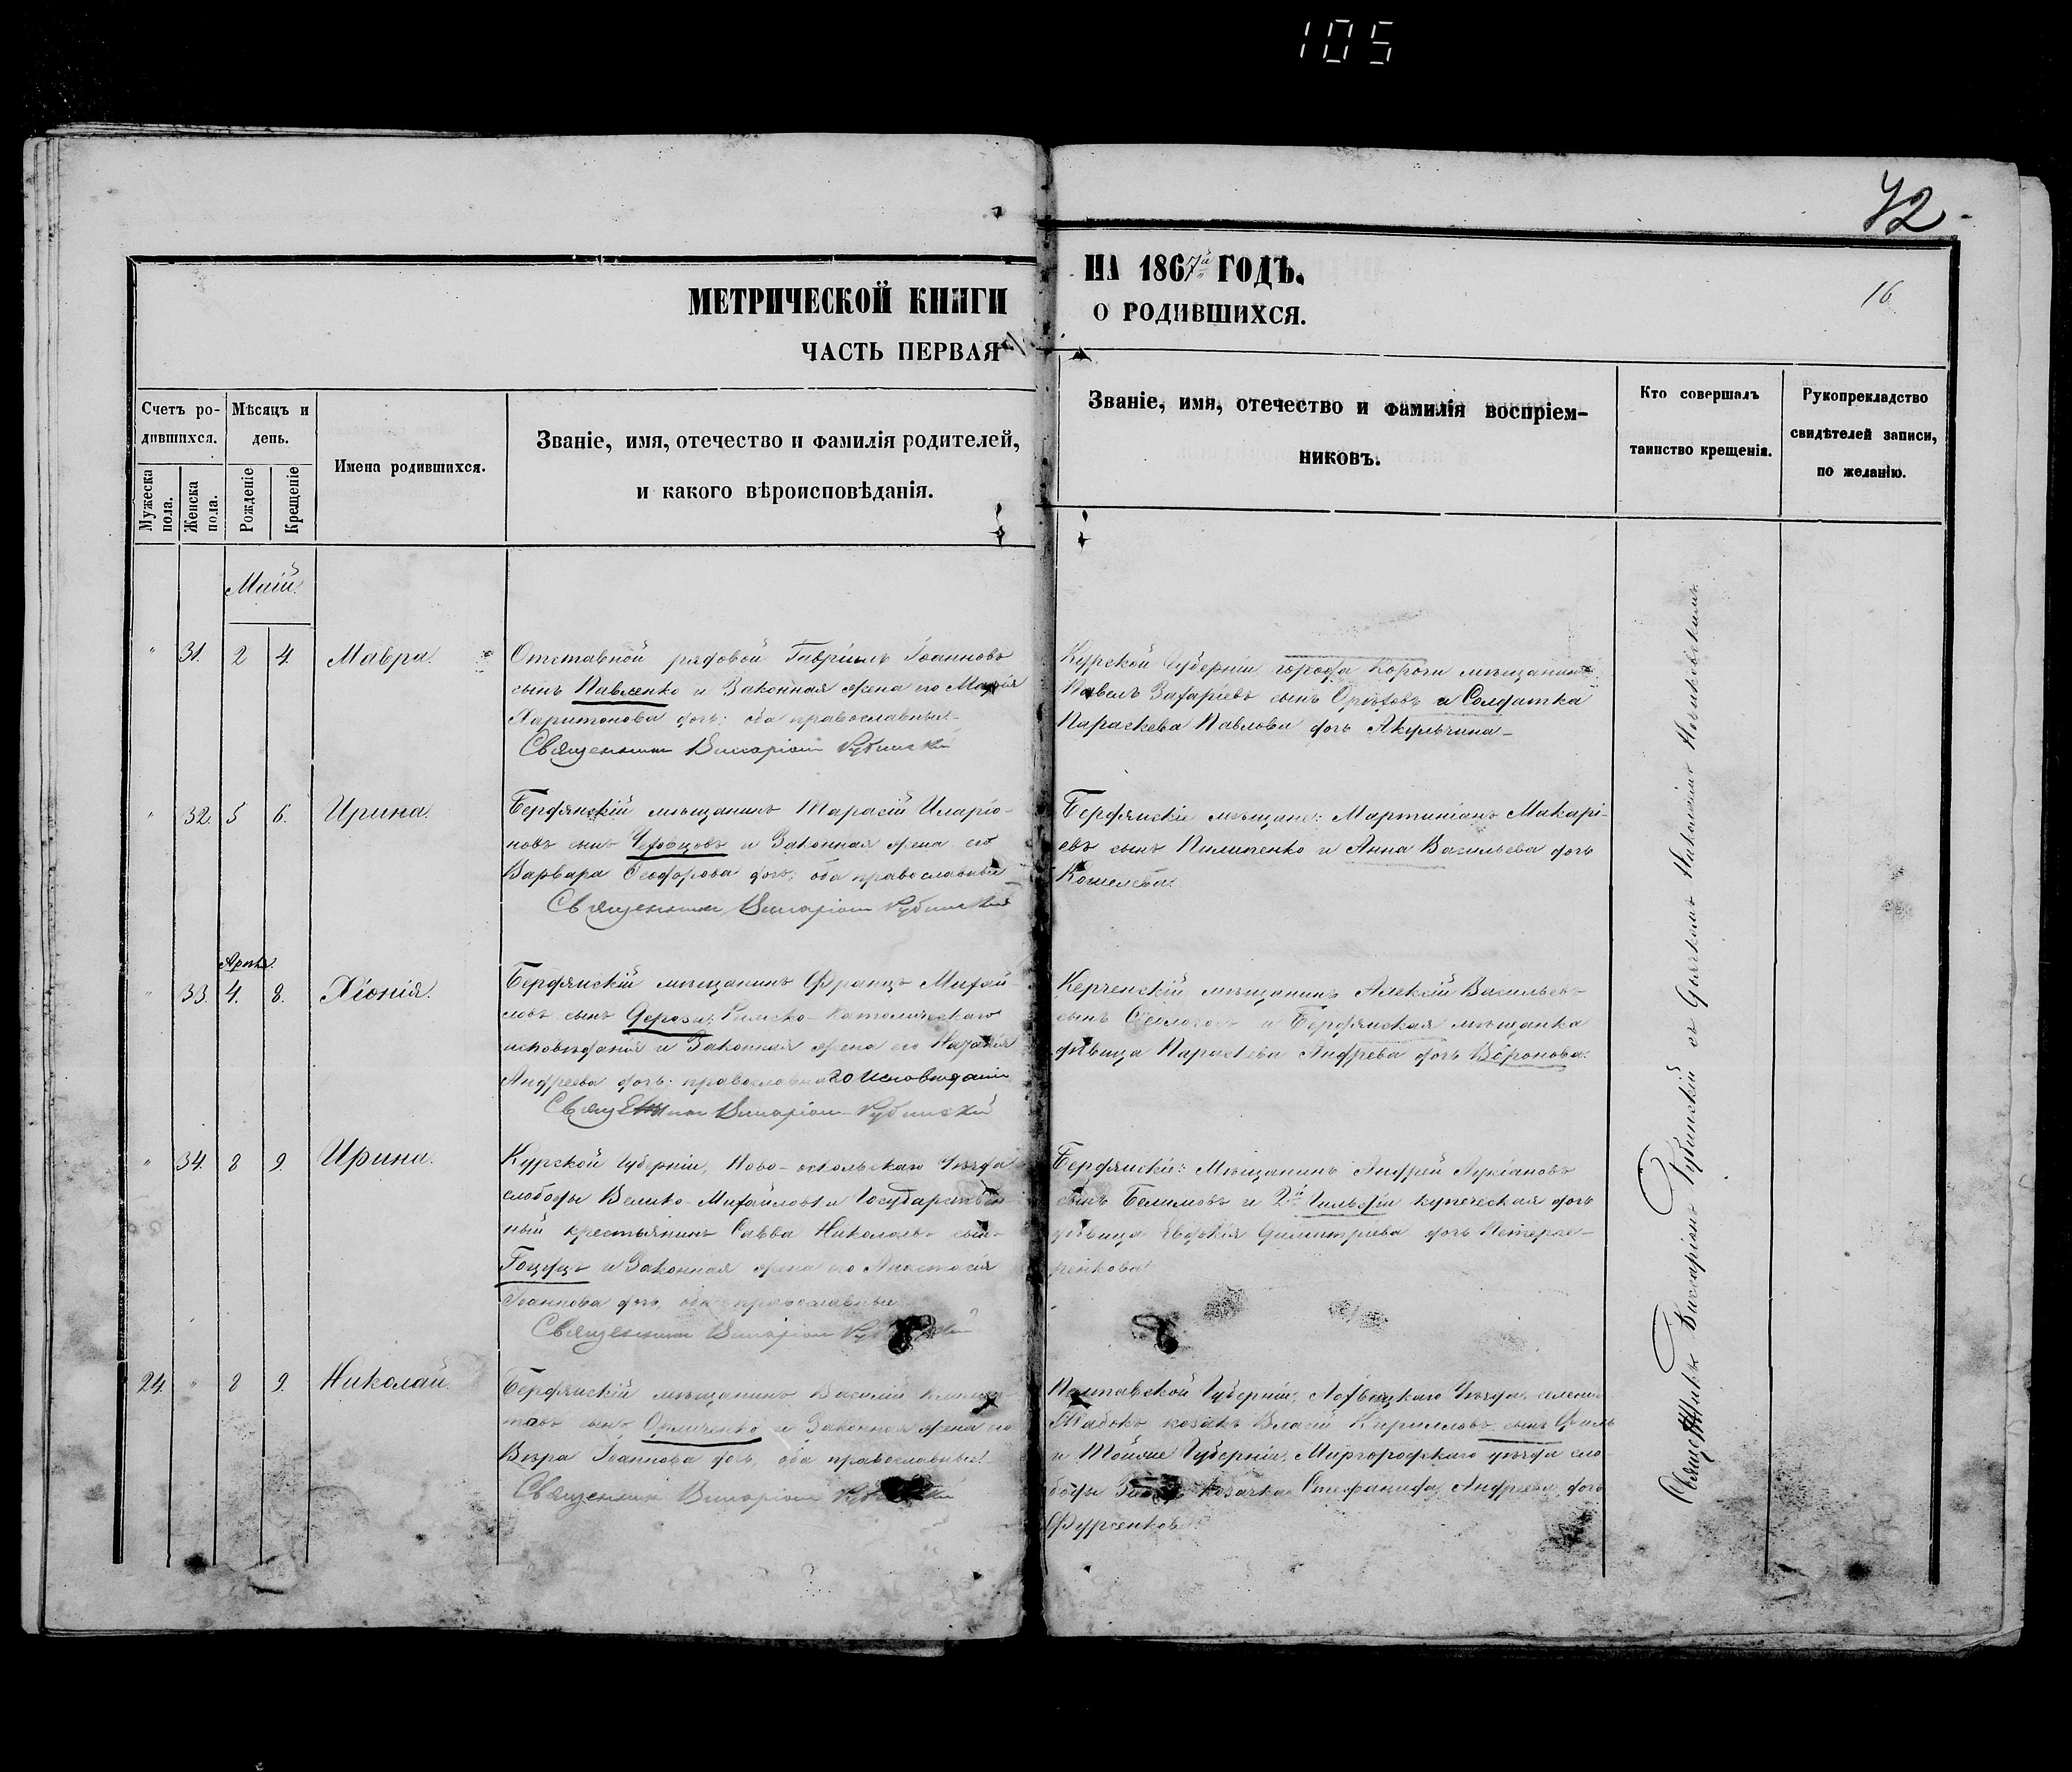 105
42
МЕТРИЧЕСКОЙ КНИГИ
ЧАСТЬ ПЕРВАЯ
НА 1867й ГОДЪ.
О РОДИВШИХСЯ.
16
Счетъ ро-
дившихся.
Мужеска пола.
Женска пола.
Мѣсяцъ и
день.
Рожденіе
Крещеніе
Имена родившихся.
Званіе, имя, отечество и фамилія родителей,
и какого вѣроисповѣданія.
Званіе, имя, отечество и фамилія воспріем-
никовъ.
Кто совершалъ
таинство крещенія.
Рукоприкладство
свидѣтелей записи,
по желанію.
Маій
" 31. 2 4. Мавра.
Отставной рядовой Гавріилъ Іоанновъ
сынъ Павленко и Законная жена его Марія
Харитонова дочь; оба православные
Священник Виссаріон Рубинский
Курской Губерніи города Корочи мѣщанинъ
Павелъ Захаріевъ сынъ и Солдатка
Параскева Павлова дочь Акульчина
" 32. 5 6. Ирина.
Бердянскій мѣщанинъ Тарасій Иларіо-
новъ сынъ и Законная жена его
Варвара Ѳеодорова дочь; оба православные
Священник Виссаріон Рубинский
Бердянскіе мѣщане: Мартиніанъ Макарі-
евъ сынъ Пилипенко и Анна Васильева дочь
Кошелева.
Апрѣл.
" 33. 4. 8. Хіонія.
Бердянскій мѣщанинъ Францъ Михай-
ловъ сынъ Дерози, Римско-Католическаго
исповѣданія и Законная жена его
Андреева дочь: православнаго исповедания
Священник Виссаріон Рубинский
Керченскій мѣщанинъ Алексій Васильевъ
сынъ и Бердянская мѣщанка
дѣвица Параскева Андреева дочь Воронова.
" 34. 8 9. Ирина.
Курской Губерніи, Ново-оскольскаго Уѣзда
слободы Велико-Михайловки Государствен-
ный крестьянинъ Савва Николаевъ сынъ
и Законная жена его Анастасія
Іоаннова дочь, оба православные
Священник Виссаріон Рубинский
Бердянскіе: Мѣщанинъ Андрей Лукіановъ
сынъ Белимовъ и 2й Гильдіи купеческая дочь
дѣвица Евдокія Димитріева дочь
24. " 8 9. Николай.
Бердянскій мѣщанинъ Василій
сынъ и Законная жена его
Вѣра Іоаннова дочь, оба православные
Священник Виссаріон Рубинский
Полтавской Губерніи, Лохвицкаго Уѣзда, селенія
козакъ Власій Кирилловъ сынъ
и Тойже Губерніи, Миргородскаго уѣзда сло-
боды козачка Стефанида Андреева дочь
Священникъ Виссаріонъ Рубинскій съ Дьячкомъ Николаемъ